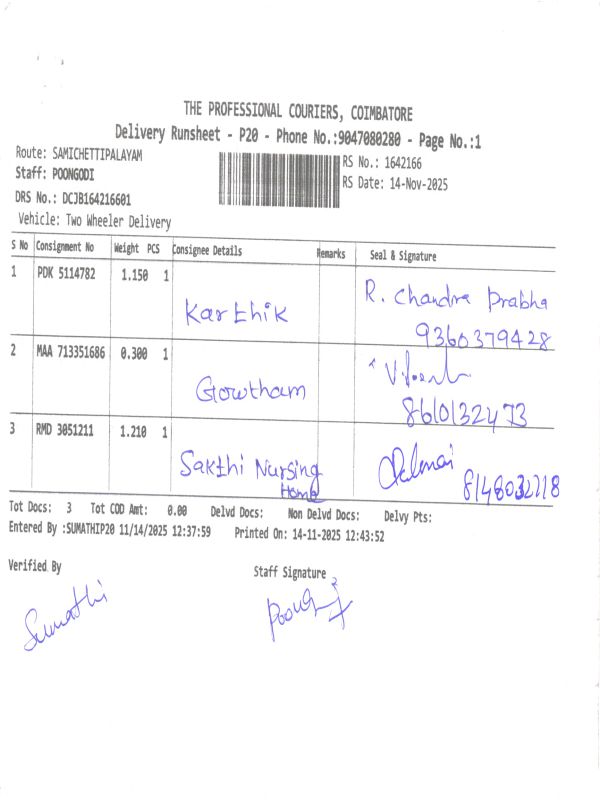 THE PROFESSIONAL COURIERS, COIMBATORE
Delivery Runsheet - P20 - Phone No.:9047080280 - Page No.:1
Route: SAMICHETTIPALAYAM RS No.: 1642166
Staff: POONGODI RS Date: 14-Nov-2025
DRS No.: DCJB164216601
Vehicle: Two Wheeler Delivery
S No Consignment No Weight PCS Consignee Details Remarks Seal & Signature
1 PDK 5114782 1.150 1 Karthik R. Chandra Prabha
9360379428
2 MAA 713351686 0.300 1 Gowtham
8610132473
3 RMD 3051211 1.210 1 Sakthi Nursing
Home
Tot Docs: 3 Tot COD Amt: 0.00 Delvd Docs: Non Delvd Docs: Delvy Pts:
Entered By :SUMATHIP20 11/14/2025 12:37:59 Printed On: 14-11-2025 12:43:52
Verified By Staff Signature
Sumathi